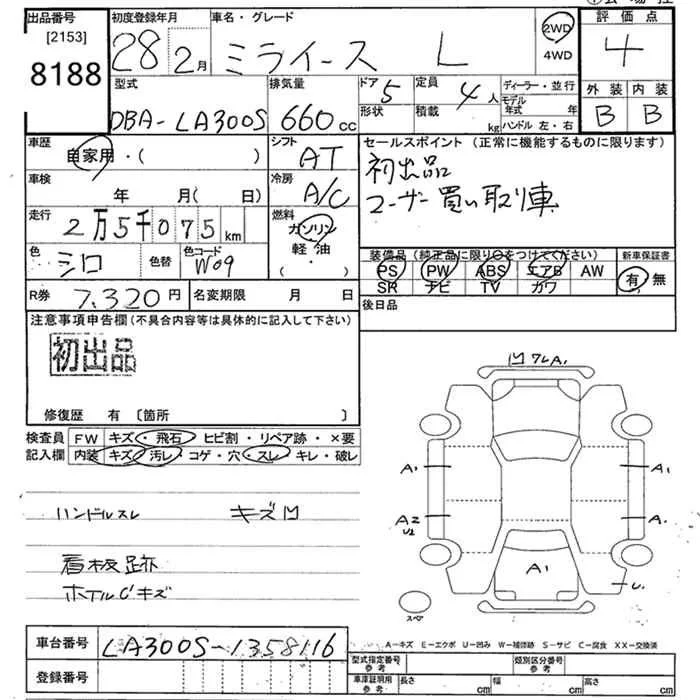 出品番号
[2153]
8188
初度登録年月
28 2月
車名・グレード
ミライース L
2WD
4WD
評価点
4
外装 内装
B B
型式
DBA-LA300S
排気量
660cc
ドア 5
形状
定員 4人
積載 kg
ディーラー・並行
モデル年式 年
ハンドル 左・右
車歴
自家用・( )
シフト
AT
セールスポイント(正常に機能するものに限ります)
初出品
ユーザー買い取り車
車検
年 月( 日)
冷房
A/C
走行
2万5千075km
燃料
ガソリン
軽油
( ・ )
色
シロ
色替
色コード
W09
装備品(純正品に限り○をつけてください)
PS PW ABS エアB AW
SR ナビ TV カワ
新車保証書
有・無
R券 7,320円
名変期限 月 日
後日品
注意事項申告欄(不具合内容等は具体的に記入して下さい)
初出品
修復歴 有〔箇所 〕
検査員記入欄
FW キズ・飛石 ヒビ割・リペア跡・×要
内装 キズ・汚レ・コゲ・穴・スレ・キレ・破レ
ハンドルスレ キズ凹
看板跡
ホイルCキズ
凹 ワレA1
A1 A1
A2
U2
A1
スペア
車台番号 LA300S-1358116
登録番号
A-キズ E-エクボ U-凹み W-補修跡 S-サビ C-腐食 XX-交換済
型式指定番号参考
類別区分番号参考
車庫証明用参考 長さ cm 幅 cm 高さ cm